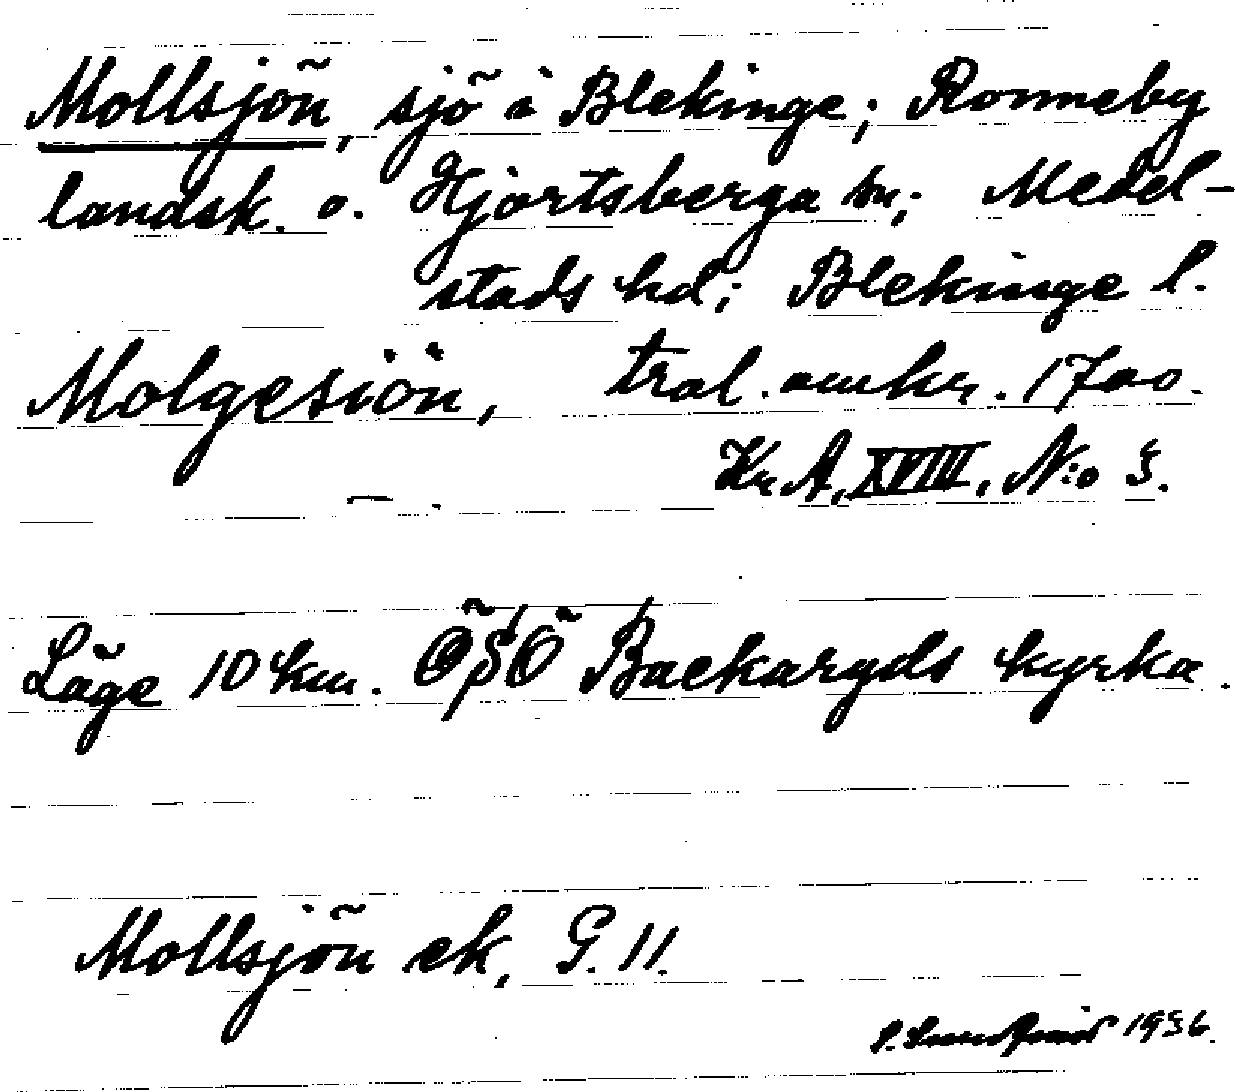 Mollsjön, sjö i Blekinge; Ronneby
landsk. o. Hjortsberga sn; Medel-
stads hd; Blekinge l.
Molgesiön, tral. omkr. 1700.
Kr A, XVIII, N:o 3.
Läge 10 km. ÖSÖ Backaryds kyrka.
Mollsjön ek, G. 11.
1936.